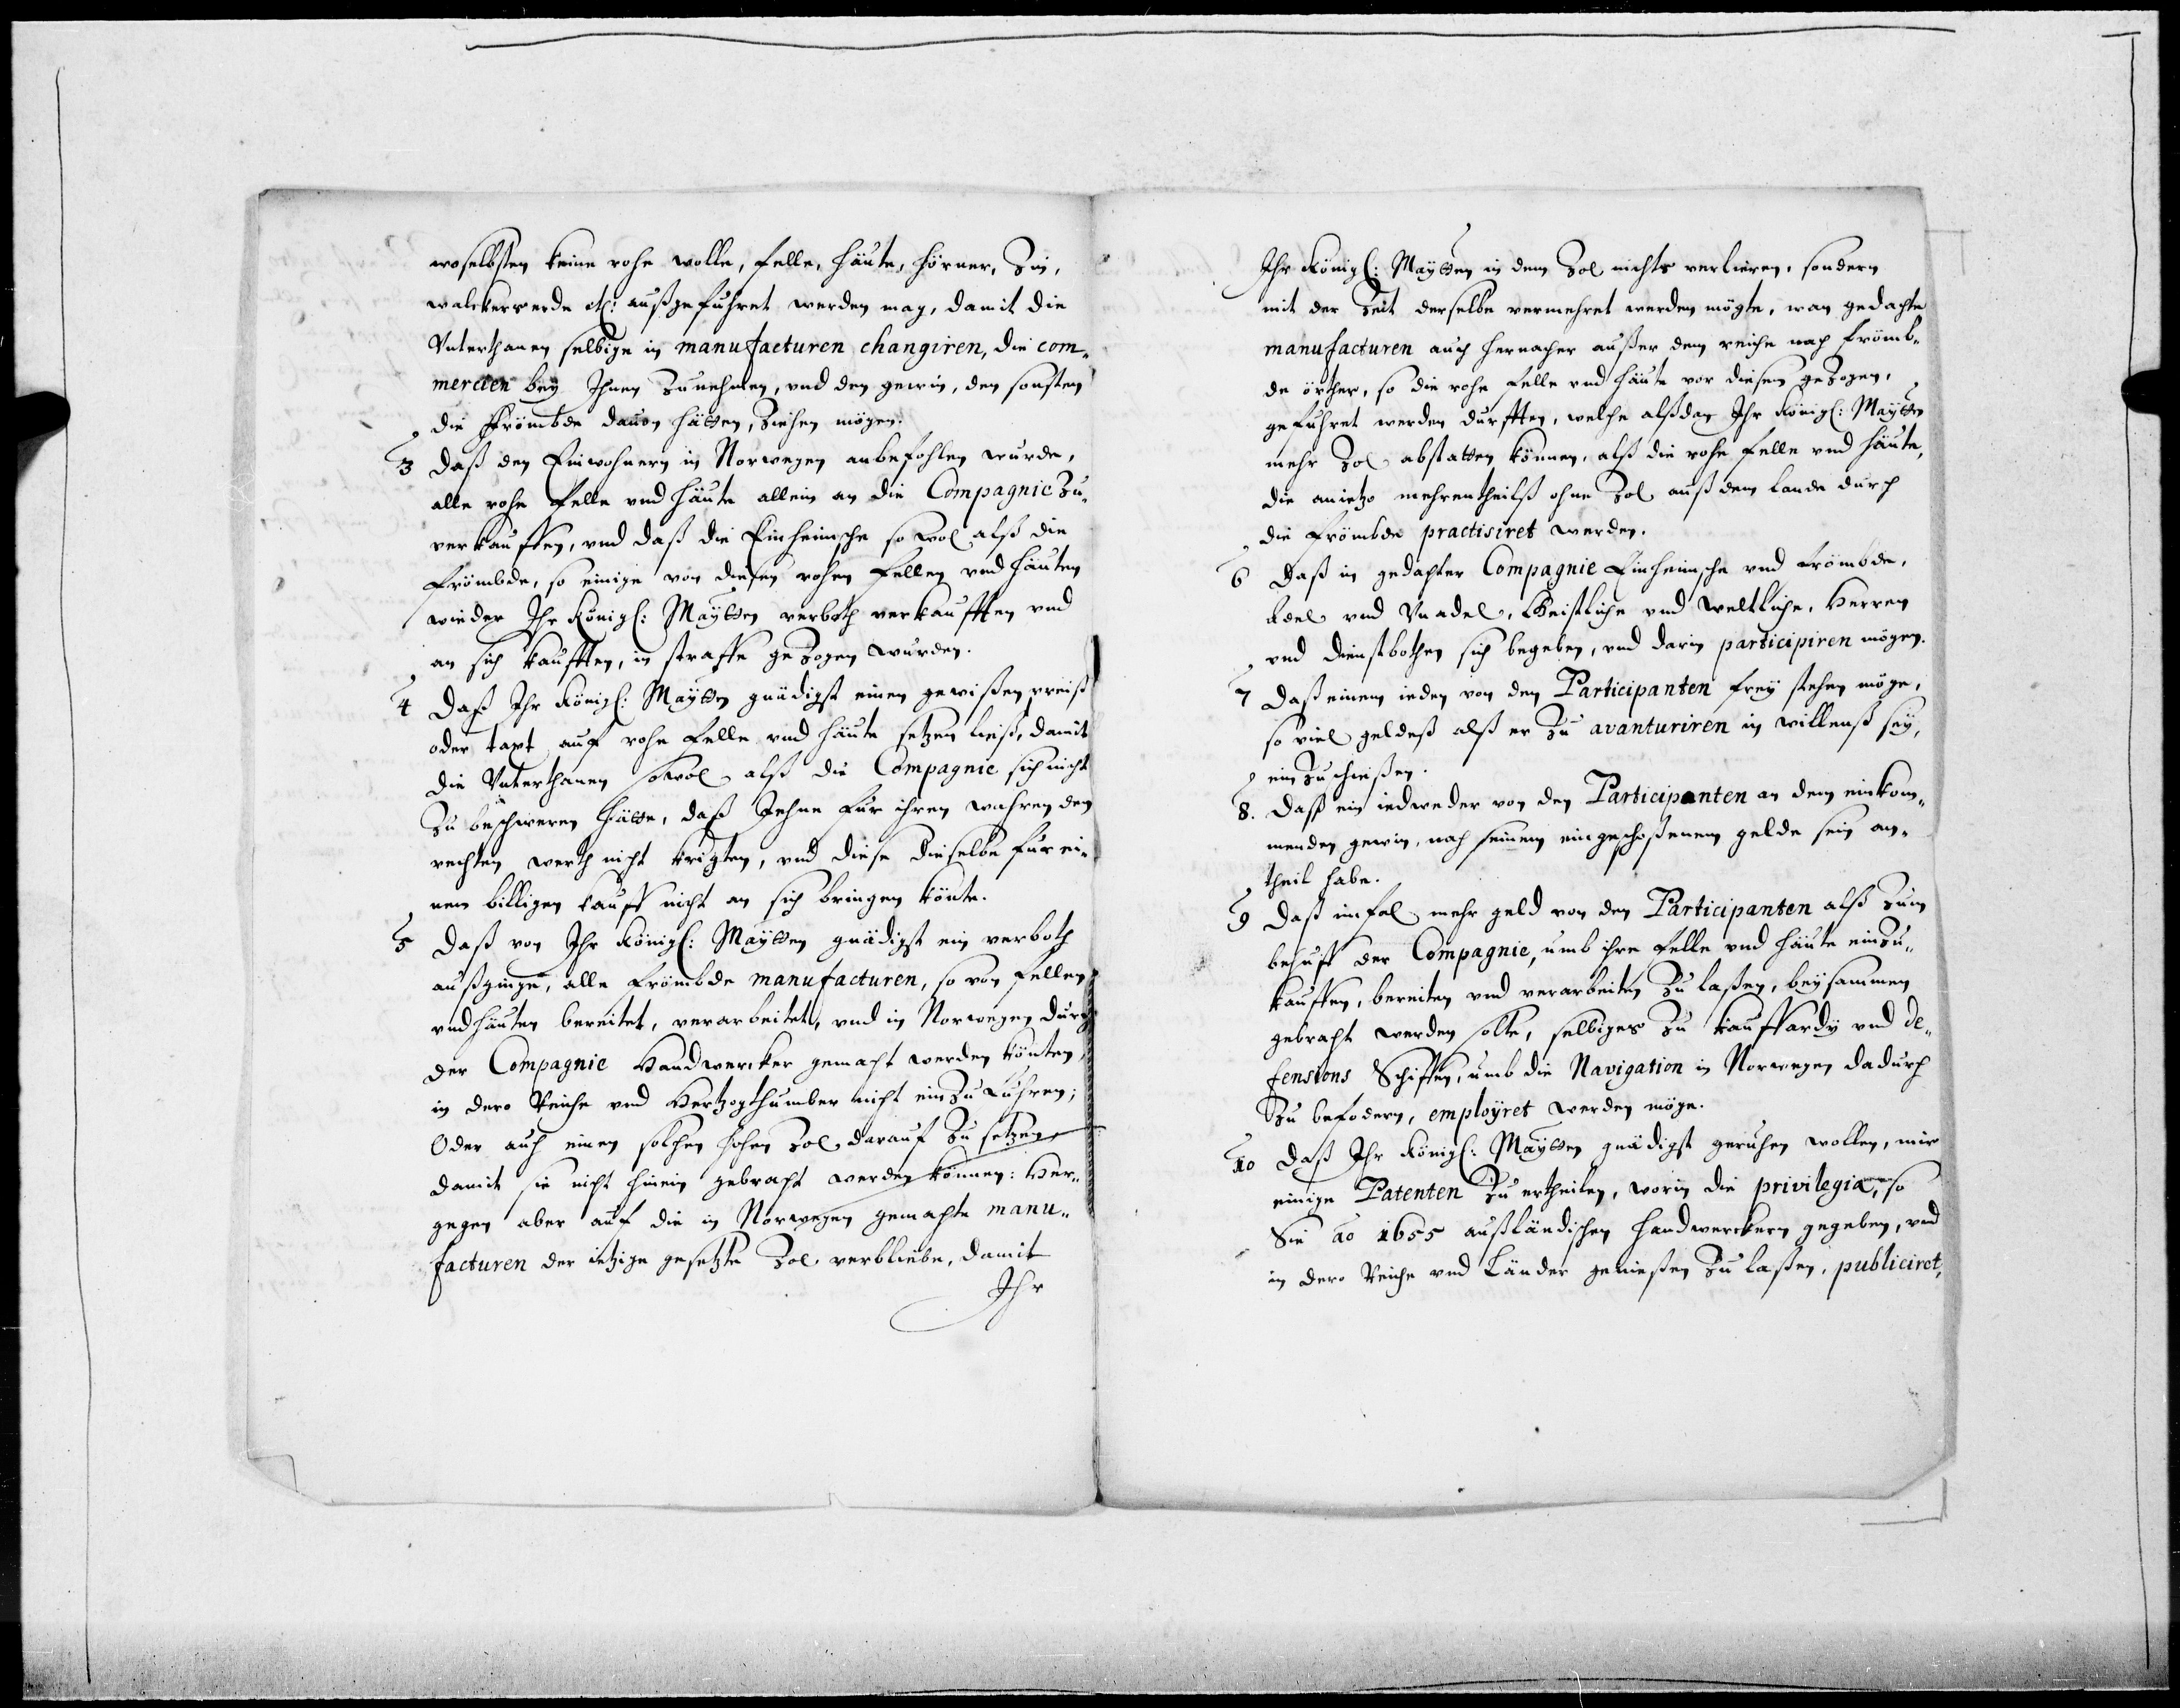 woselbsten keine rohe wolle, felle, häute, hörner, Zin,
walckerserde etc: außgeführet werden mag, damit die
Unterthanen selbige in manufacturen changiren, die com-
mercien bey Ihnen zunehmen, und den gewin, den sonsten
die Frömbde dauon hätten, ziehen mögen.
3 Daß den Einwohnern in Norwegen anbefohlen würde,
alle rohe felle und häute allein an die Compagnie zu-
verkauffen, und daß die Einheimsche so wol alß die
Frömbde, so einige von diesen rohen fellen und häuten
wieder Ihr Königl: Maÿtten verboth verkaufften und
an sich kaufften, in straffe gezogen würden.
4 Daß Ihr Königl: Maÿtten gnädigst einen gewißen preiß
oder taxt auf rohe felle und häute setzen ließ, damit
die Unterthanen sowol alß die Compagnie sich nicht
zu beschweren hätte, daß Jehne für ihren wahren den
rechten werth nicht krigten, und diese dieselbe für ei-
nen billigen kauff nicht an sich bringen könte.
5 Daß von Ihr Königl: Maÿtten gnädigst ein verboth
außginge, alle Frömbde manufacturen, so von fellen
und häuten bereitet, verarbeitet, und in Norwegen durch
der Compagnie Handwercker gemacht werden könten,
in dero Reiche und Hertzogthumber nicht einzuführen;
Oder auch einen solchen hohen Zol darauf zu setzen,
damit sie nicht hinein gebracht werden können: Her-
gegen aber auf die in Norwegen gemachte manu-
facturen der ietzige gesetzte Zol verbliebe, damit
Ihr
Ihr Königl: Maÿtten in dem Zol nichts verlieren, sondern
mit der Zeit derselbe vermehret werden mögte, wan gedachte
manufacturen auch hernacher außer dem reiche nach Frömb-
de örther, so die rohe felle und häute vor diesem gezogen,
geführet werden durfften, welche alßdan Ihr Königl: Maÿtten
mehr Zol abstatten können, alß die rohe felle und häute,
die anietzo mehrentheilß ohne Zol auß dem lande durch
die Frömbde practisiret werden.
6 Daß in gedachter Compagnie Einheimsche und Frömbde,
Adel und Unadel, Geistliche und Weltliche, Herren
und dienstbothen sich begeben, und darin participiren mögen.
7 Daß einem ieden von den Participanten frey stehen möge,
so viel geldeß alß er zu avanturiren in willenß sey,
einzuschießen.
8. Daß ein iedweder von den Participanten an dem einkom-
menden gewin, nach seinem eingeschoßenem gelde sein an-
theil habe.
9 Daß imfal mehr geld von den Participanten alß zum
behuff der Compagnie, umb ihre felle und häute einzu-
kauffen, bereiten und verarbeiten zu laßen, beysammen
gebracht werden solte, selbiges zu kauffardy und de-
fensions Schiffen, umb die Navigation in Norwegen dadurch
zu befodern, employret werden möge.
10 Daß Ihr Königl: Maÿtten gnädigst geruhen wollen, mir
einige Patenten zu ertheilen, worin die privilegia, so
Sie ao 1655 außländischen handwerckern gegeben, und
in dero Reiche und Länder genießen zu laßen, publiciret,